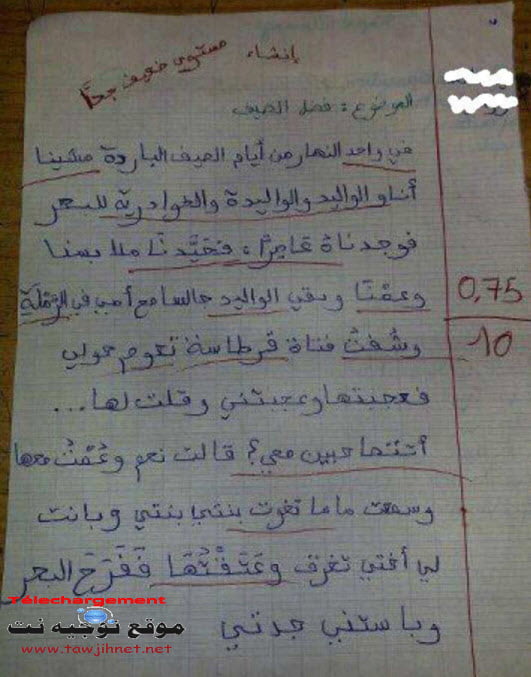 إنشاء
مستوى ضعيف جدّا
الموضوع: فصل الصيف
في واحد النهار من أيام الصيف الباردة مشينا
أنا و الواليد والواليدة والخوادرية للبحر
فوجدناه عامرا، فحيَّدنا ملابسنا
وعمْنا وبقي الواليد جالسا مع أمي في الرَّمْلَة
وشُفتُ فتاة قرطاسة تعوم حولي
فعجبتها وعجبتني وقلت لها...
أتتصاحبين معي؟ قالت نعم وعُمْتُ معها
وسمعت ماما تغوت بنتي بنتي وبانت
لي أختي تغرق وعَتَقْتُهَا فَفَرَحَ البحر
وباستني جدتي
0,75
10
Télechargement
موقع توجيه نت
www.tawjihnet.net